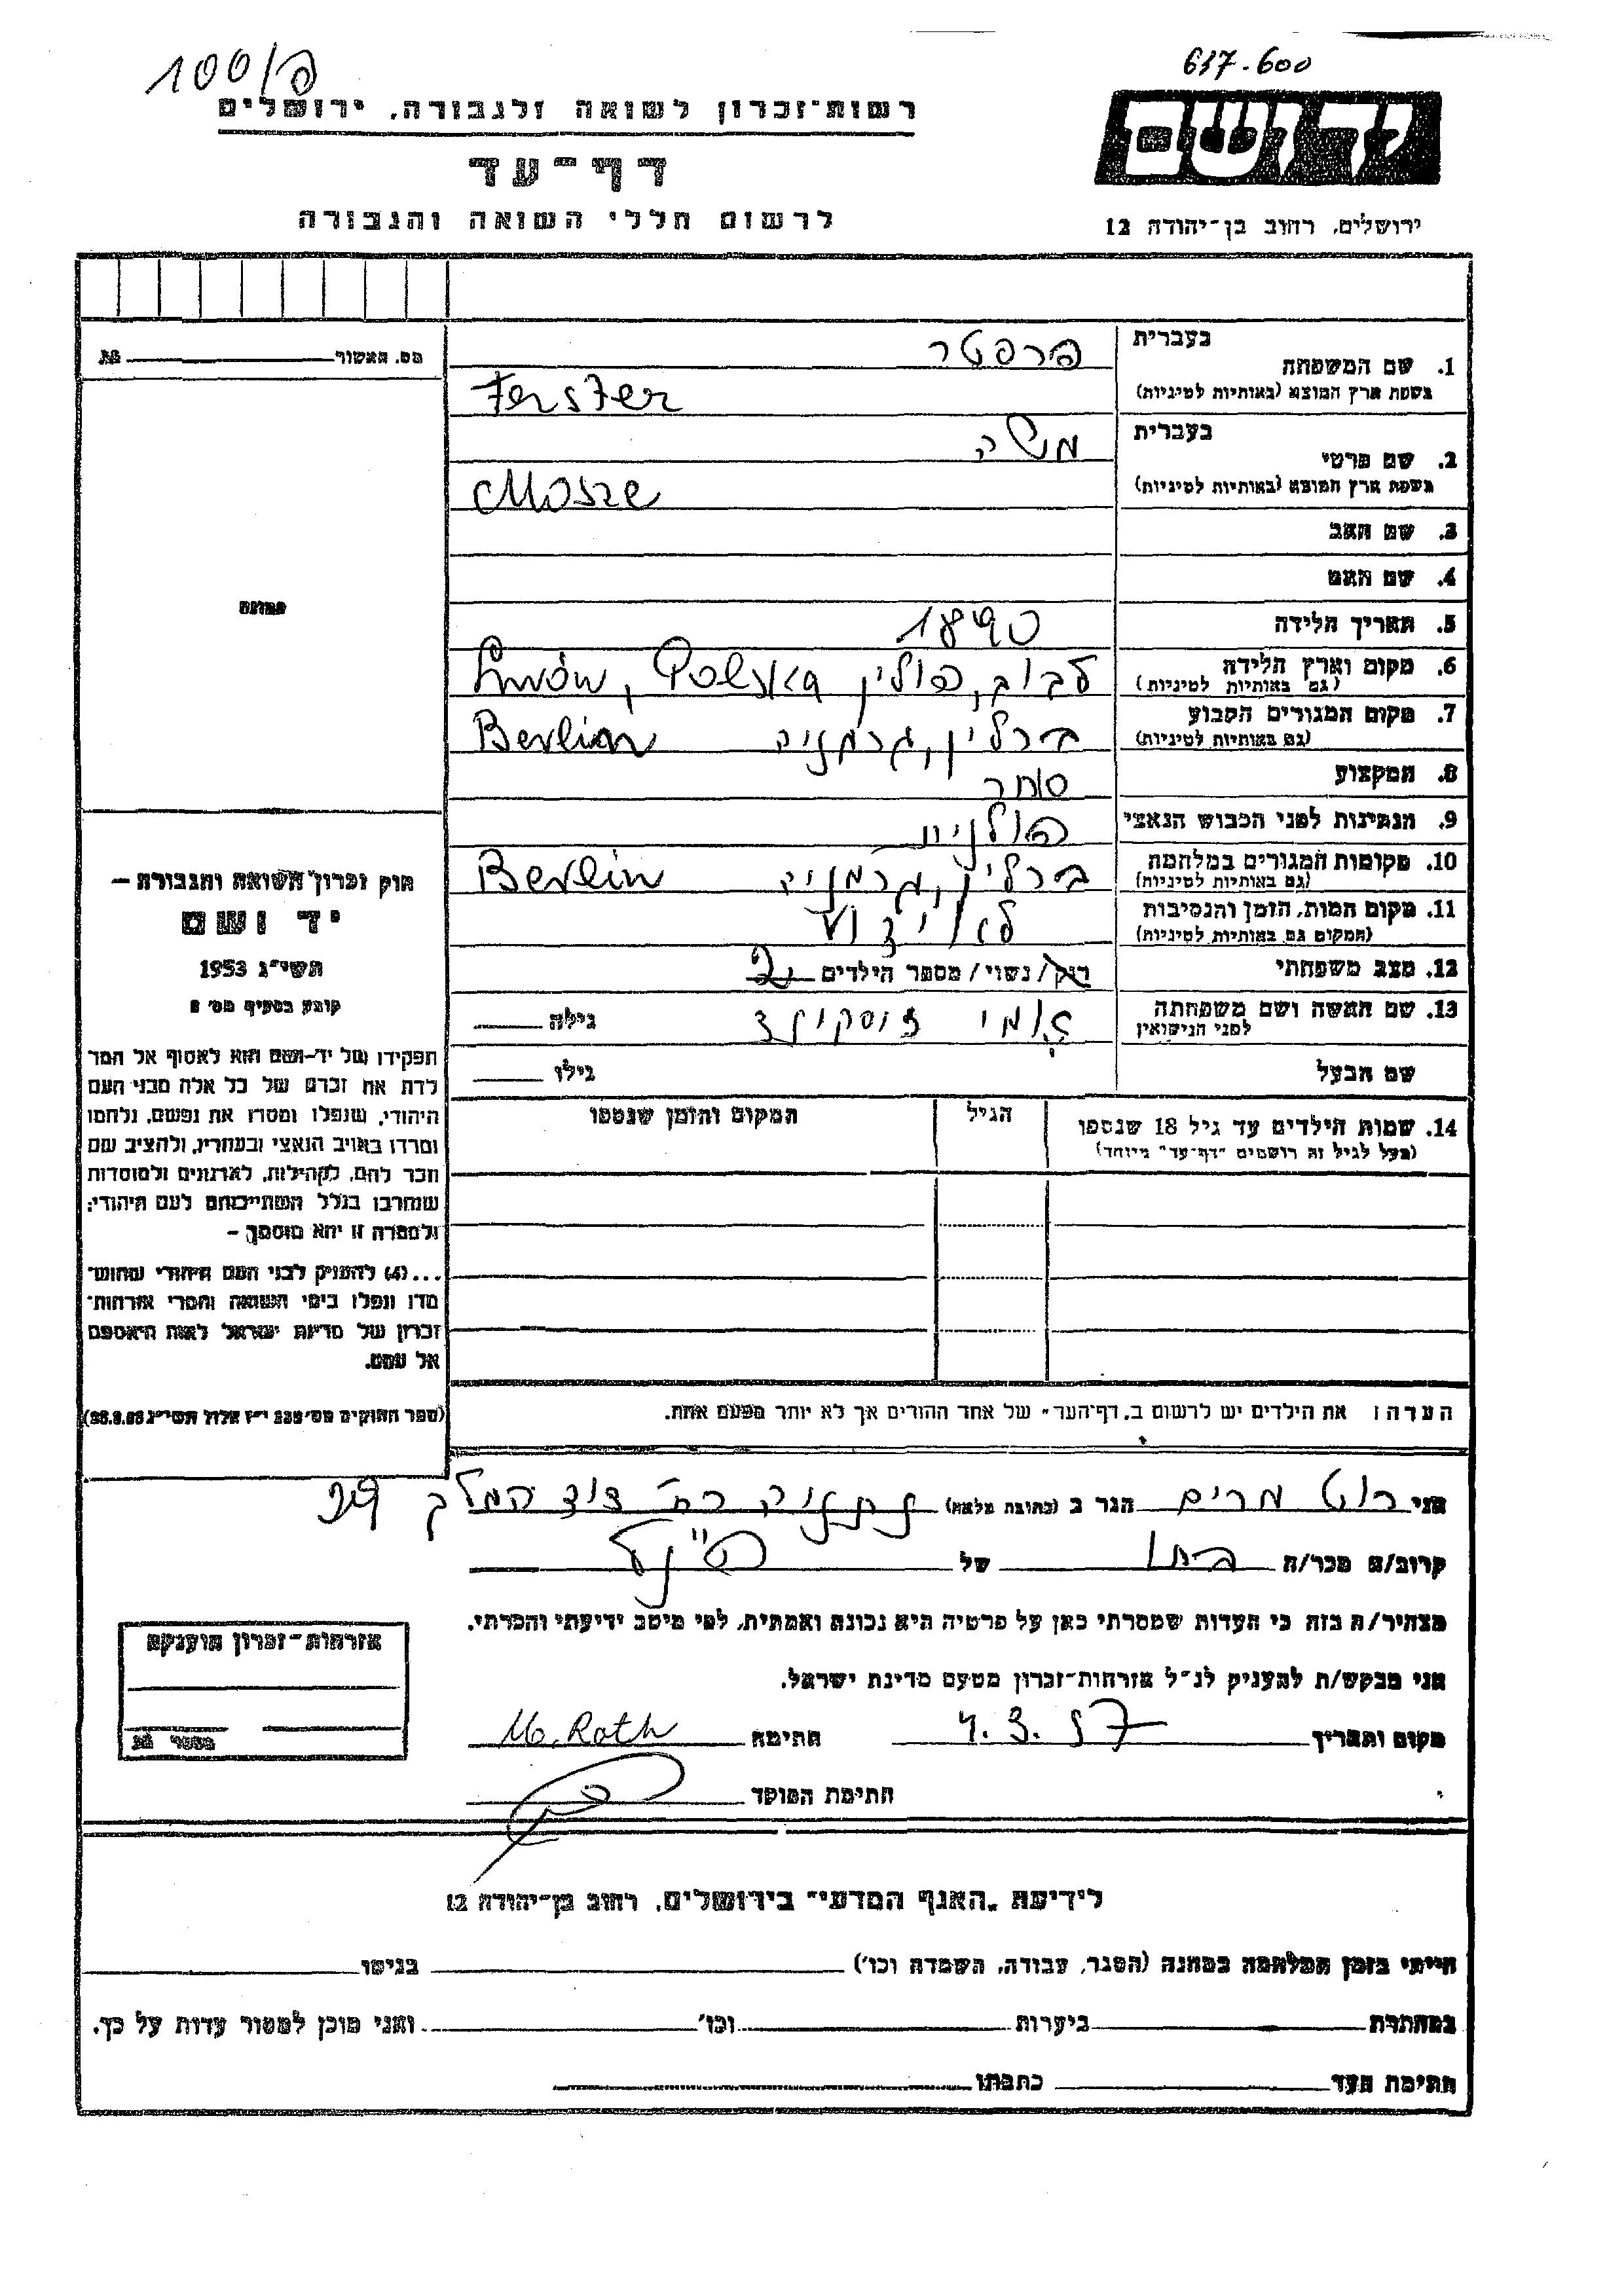 100/פ
617-600
רשות-זכרון לשואה ולגבורה, ירושלים
דף-עד
לרשום חללי השואה והגבורה
ידושם
ירושלים, רחוב בן-יהודה 12
מס. האשור
בעברית
1. שם המשפחה
פרסטר
בשפת ארץ המוצא (באותיות לטיניות)
Ferster
בעברית
2. שם פרטי
משה
בשפת ארץ המוצא (באותיות לטיניות)
Mosze
3. שם האב
4. שם האם
תמונה
5. תאריך הלידה 1890
6. מקום וארץ הלידה
(גם באותיות לטיניות)
לבוב, פולין Lwów, Polska
7. מקום המגורים הקבוע
(גם באותיות לטיניות)
ברלין, גרמניה Berlin
8. המקצוע סוחר
9. הנתינות לפני הכבוש הנאצי פולנית
10. מקומות המגורים במלחמה
(גם באותיות לטיניות)
ברלין, גרמניה Berlin
11. מקום המות, הזמן והנסיבות
(המקום גם באותיות לטיניות)
לא ידוע
12. מצב משפחתי
רוק/נשוי/ מספר הילדים 2
13. שם האשה ושם משפחתה
לפני הנישואין
גילה
שם הבעל גילו
14. שמות הילדים עד גיל 18 שנספו
(מעל לגיל זה רושמים "דף-עד" מיוחד)
הגיל
המקום והזמן שנספו
הערה: את הילדים יש לרשום ב"דף-העד" של אחד ההורים אך לא יותר מפעם אחת.
חוק זכרון השואה והגבורה –
יד ושם
תשי"ג 1953
קובע בסעיף מס' 2
תפקידו של יד-ושם הוא לאסוף אל המו
לדת את זכרם של כל אלה מבני העם
היהודי, שנפלו ומסרו את נפשם, נלחמו
ומרדו באויב הנאצי ובעוזריו, ולהציב שם
וזכר להם, לקהילות, לארגונים ולמוסדות
שנחרבו בגלל השתייכותם לעם היהודי;
ולמטרה זו יהא מוסמך –
...(4) להעניק לבני העם היהודי שהוש־
מדו ונפלו בימי השואה והמרי אזרחות־
זכרון של מדינת ישראל לאות היאספם
אל עמם.
אני רוט מרים הגר ב (כתובת מלאה) נתניה רח' דוד המלך
קרוב/ה מכר/ה בתו של הנ"ל
מצהיר/ה בזה כי העדות שמסרתי כאן על פרטיה היא נכונה ואמתית, לפי מיטב ידיעתי והכרתי.
אני מבקש/ת להעניק לנ"ל אזרחות-זכרון מטעם מדינת ישראל.
מקום ותאריך 4.3.57 חתימה M. Roth
חתימת הפוקד
אזרחות-זכרון הוענקה
לידיעת "האגף המדעי" בירושלים, רחוב בן-יהודה 12
הייתי בזמן המלחמה במחנה (הסגר, עבודה, השמדה וכו') בגיטו
במחתרת ביערות וכו' ואני מוכן למסור עדות על כך.
חתימת העד כתבתו